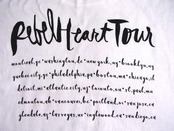 Rebel Heart Tour
montreal, pq * washington, dc * new york, ny * brooklyn, ny
quebec city, pq * philadelphia, pa * boston, ma * chicago, il
detroit, mi * atlantic city, nj * toronto, on * st. paul, mn
edmonton, ab * vancouver, bc * portland, or * san jose, ca
glendale, az * las vegas, nv * inglewood, ca * san diego, ca